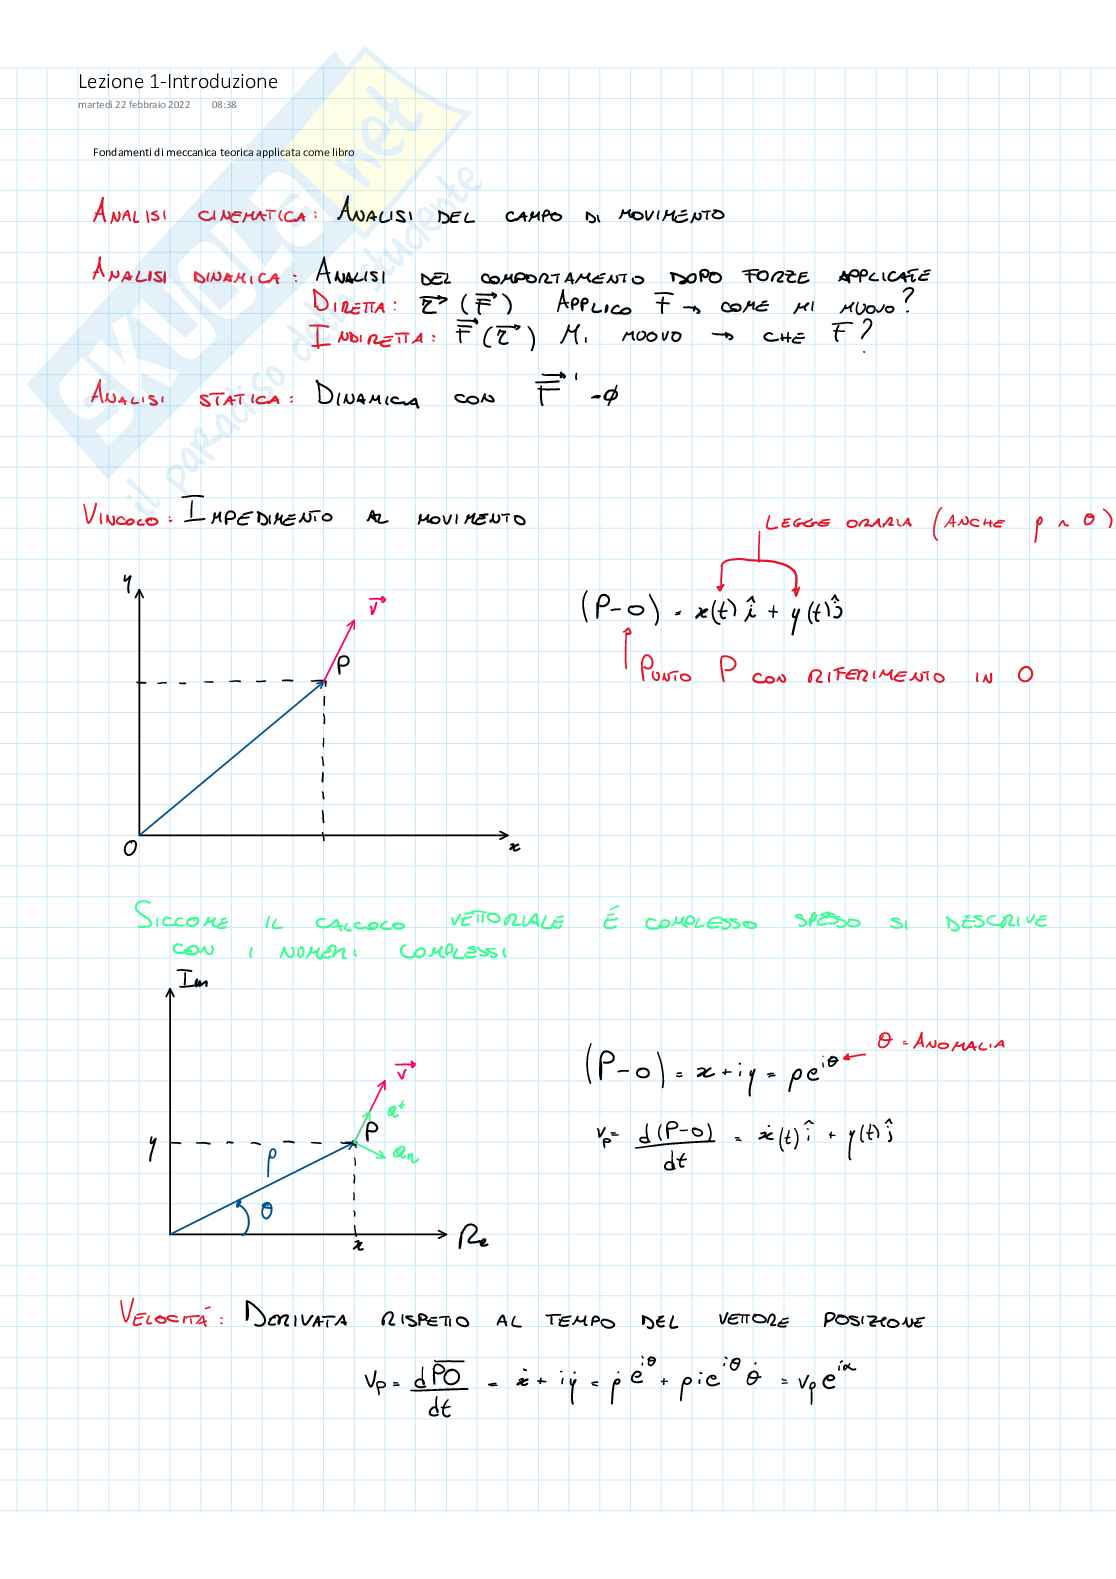 Lezione 1-Introduzione
martedì 22 febbraio 2022 08:38
Fondamenti di meccanica teorica applicata come libro
SKUOLA.net
il paradiso dello studente
ANALISI CINEMATICA: ANALISI DEL CAMPO DI MOVIMENTO
ANALISI DINAMICA: ANALISI DEL COMPORTAMENTO DOPO FORZE APPLICATE
DIRETTA: r⃗ (F⃗) APPLICO F → COME MI MUOVO?
INDIRETTA: F⃗ (r⃗) MI MUOVO → CHE F?
ANALISI STATICA: DINAMICA CON F⃗ = ϕ
VINCOLO: IMPEDIMENTO AL MOVIMENTO
LEGGE ORARIA (ANCHE ρ ~ θ)
y
v⃗
P
(P-O) = x(t) î + y(t) ĵ
PUNTO P CON RIFERIMENTO IN O
O
x
SICCOME IL CALCOLO VETTORIALE É COMPLESSO SPESSO SI DESCRIVE
CON I NUMERI COMPLESSI
Im
θ = ANOMALIA
(P-O) = x + iy = ρe^{iθ}
v⃗
a^t
P
a_n
v_P = d(P-O)/dt = ẋ(t) î + ẏ(t) ĵ
y
ρ
θ
x
Re
VELOCITÁ: DERIVATA RISPETTO AL TEMPO DEL VETTORE POSIZIONE
v_P = dPO/dt = ẋ + iẏ = ρ̇ e^{iθ} + ρ i e^{iθ} θ̇ = v_P e^{iα}